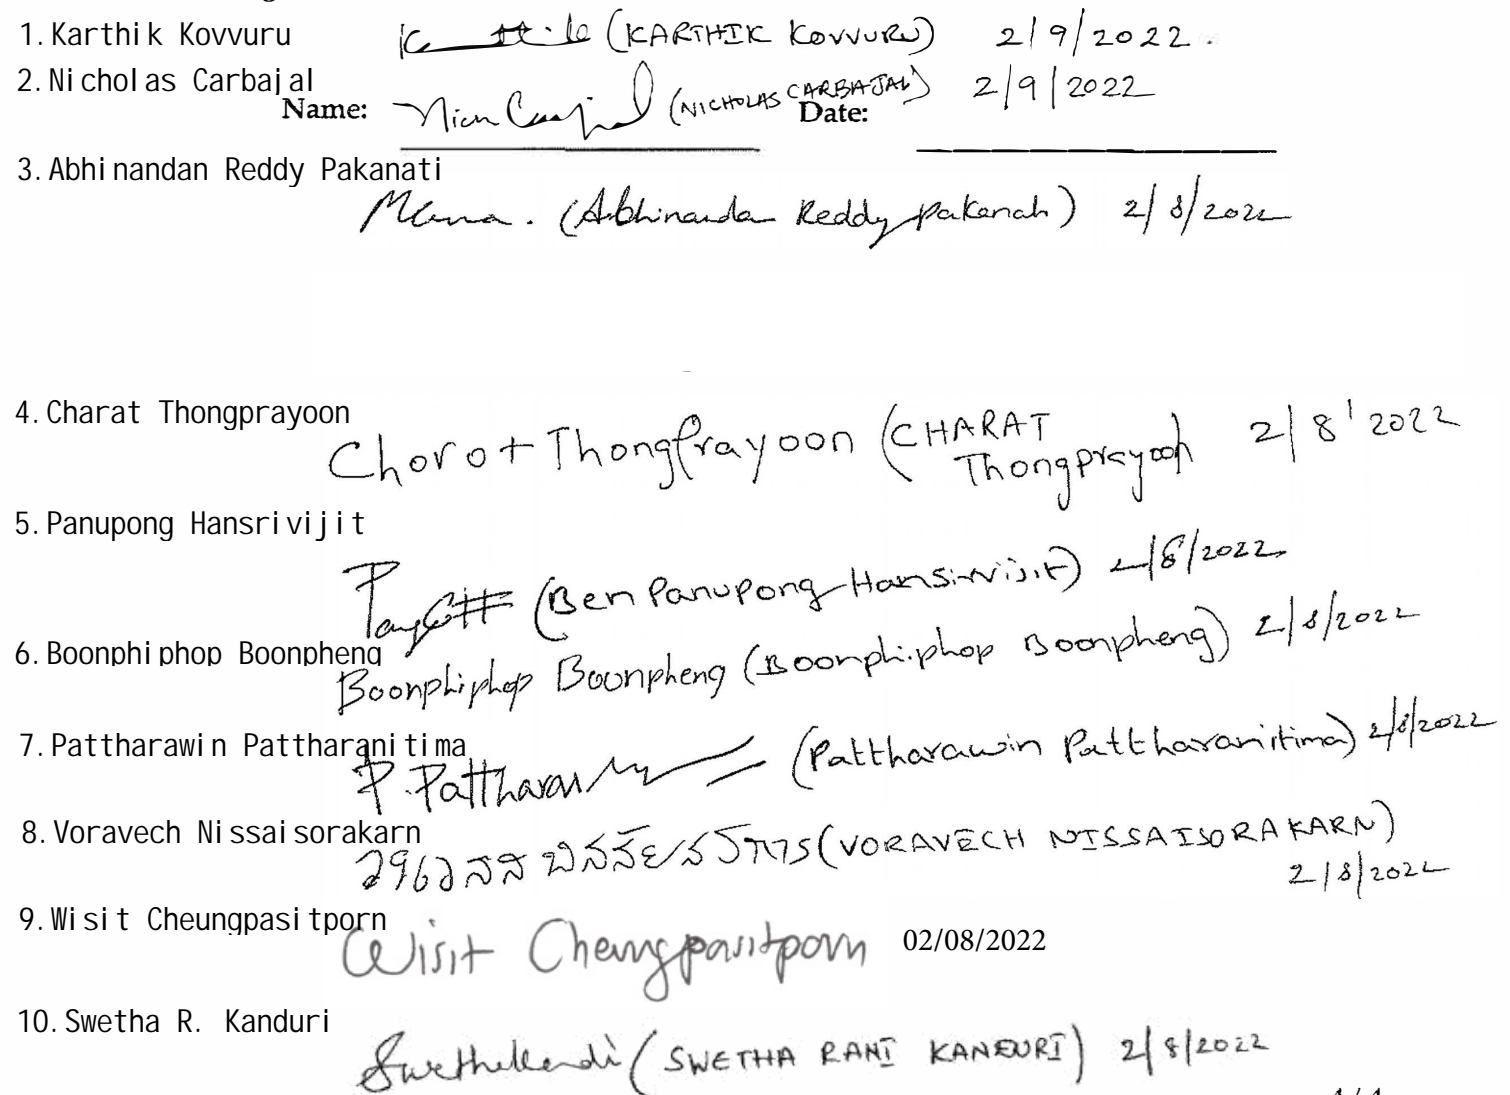 1. Karthik Kovvuru (KARTHIK KOVVURU) 2/9/2022.
2. Nicholas Carbajal (NICHOLAS CARBAJAL) 2/9/2022
Name: Date:
3. Abhinandan Reddy Pakanati
(Abhinandan Reddy pakanati) 2/8/2022
4. Charat Thongprayoon
Charat Thongprayoon (CHARAT Thongprayoon) 2/8/2022
5. Panupong Hansrivijit
(Ben Panupong Hansrivijit) 2/8/2022
6. Boonphiphop Boonpheng
Boonphiphop Boonpheng (Boonphiphop Boonpheng) 2/8/2022
7. Pattharawin Pattharanitima
P. Pattharawin (Pattharawin Pattharanitima) 2/8/2022
8. Voravech Nissaisorakarn
(VORAVECH NISSAISORAKARN)
2/8/2022
9. Wisit Cheungpasitporn
Wisit Cheungpasitporn 02/08/2022
10. Swetha R. Kanduri
(SWETHA RANI KANDURI) 2/8/2022